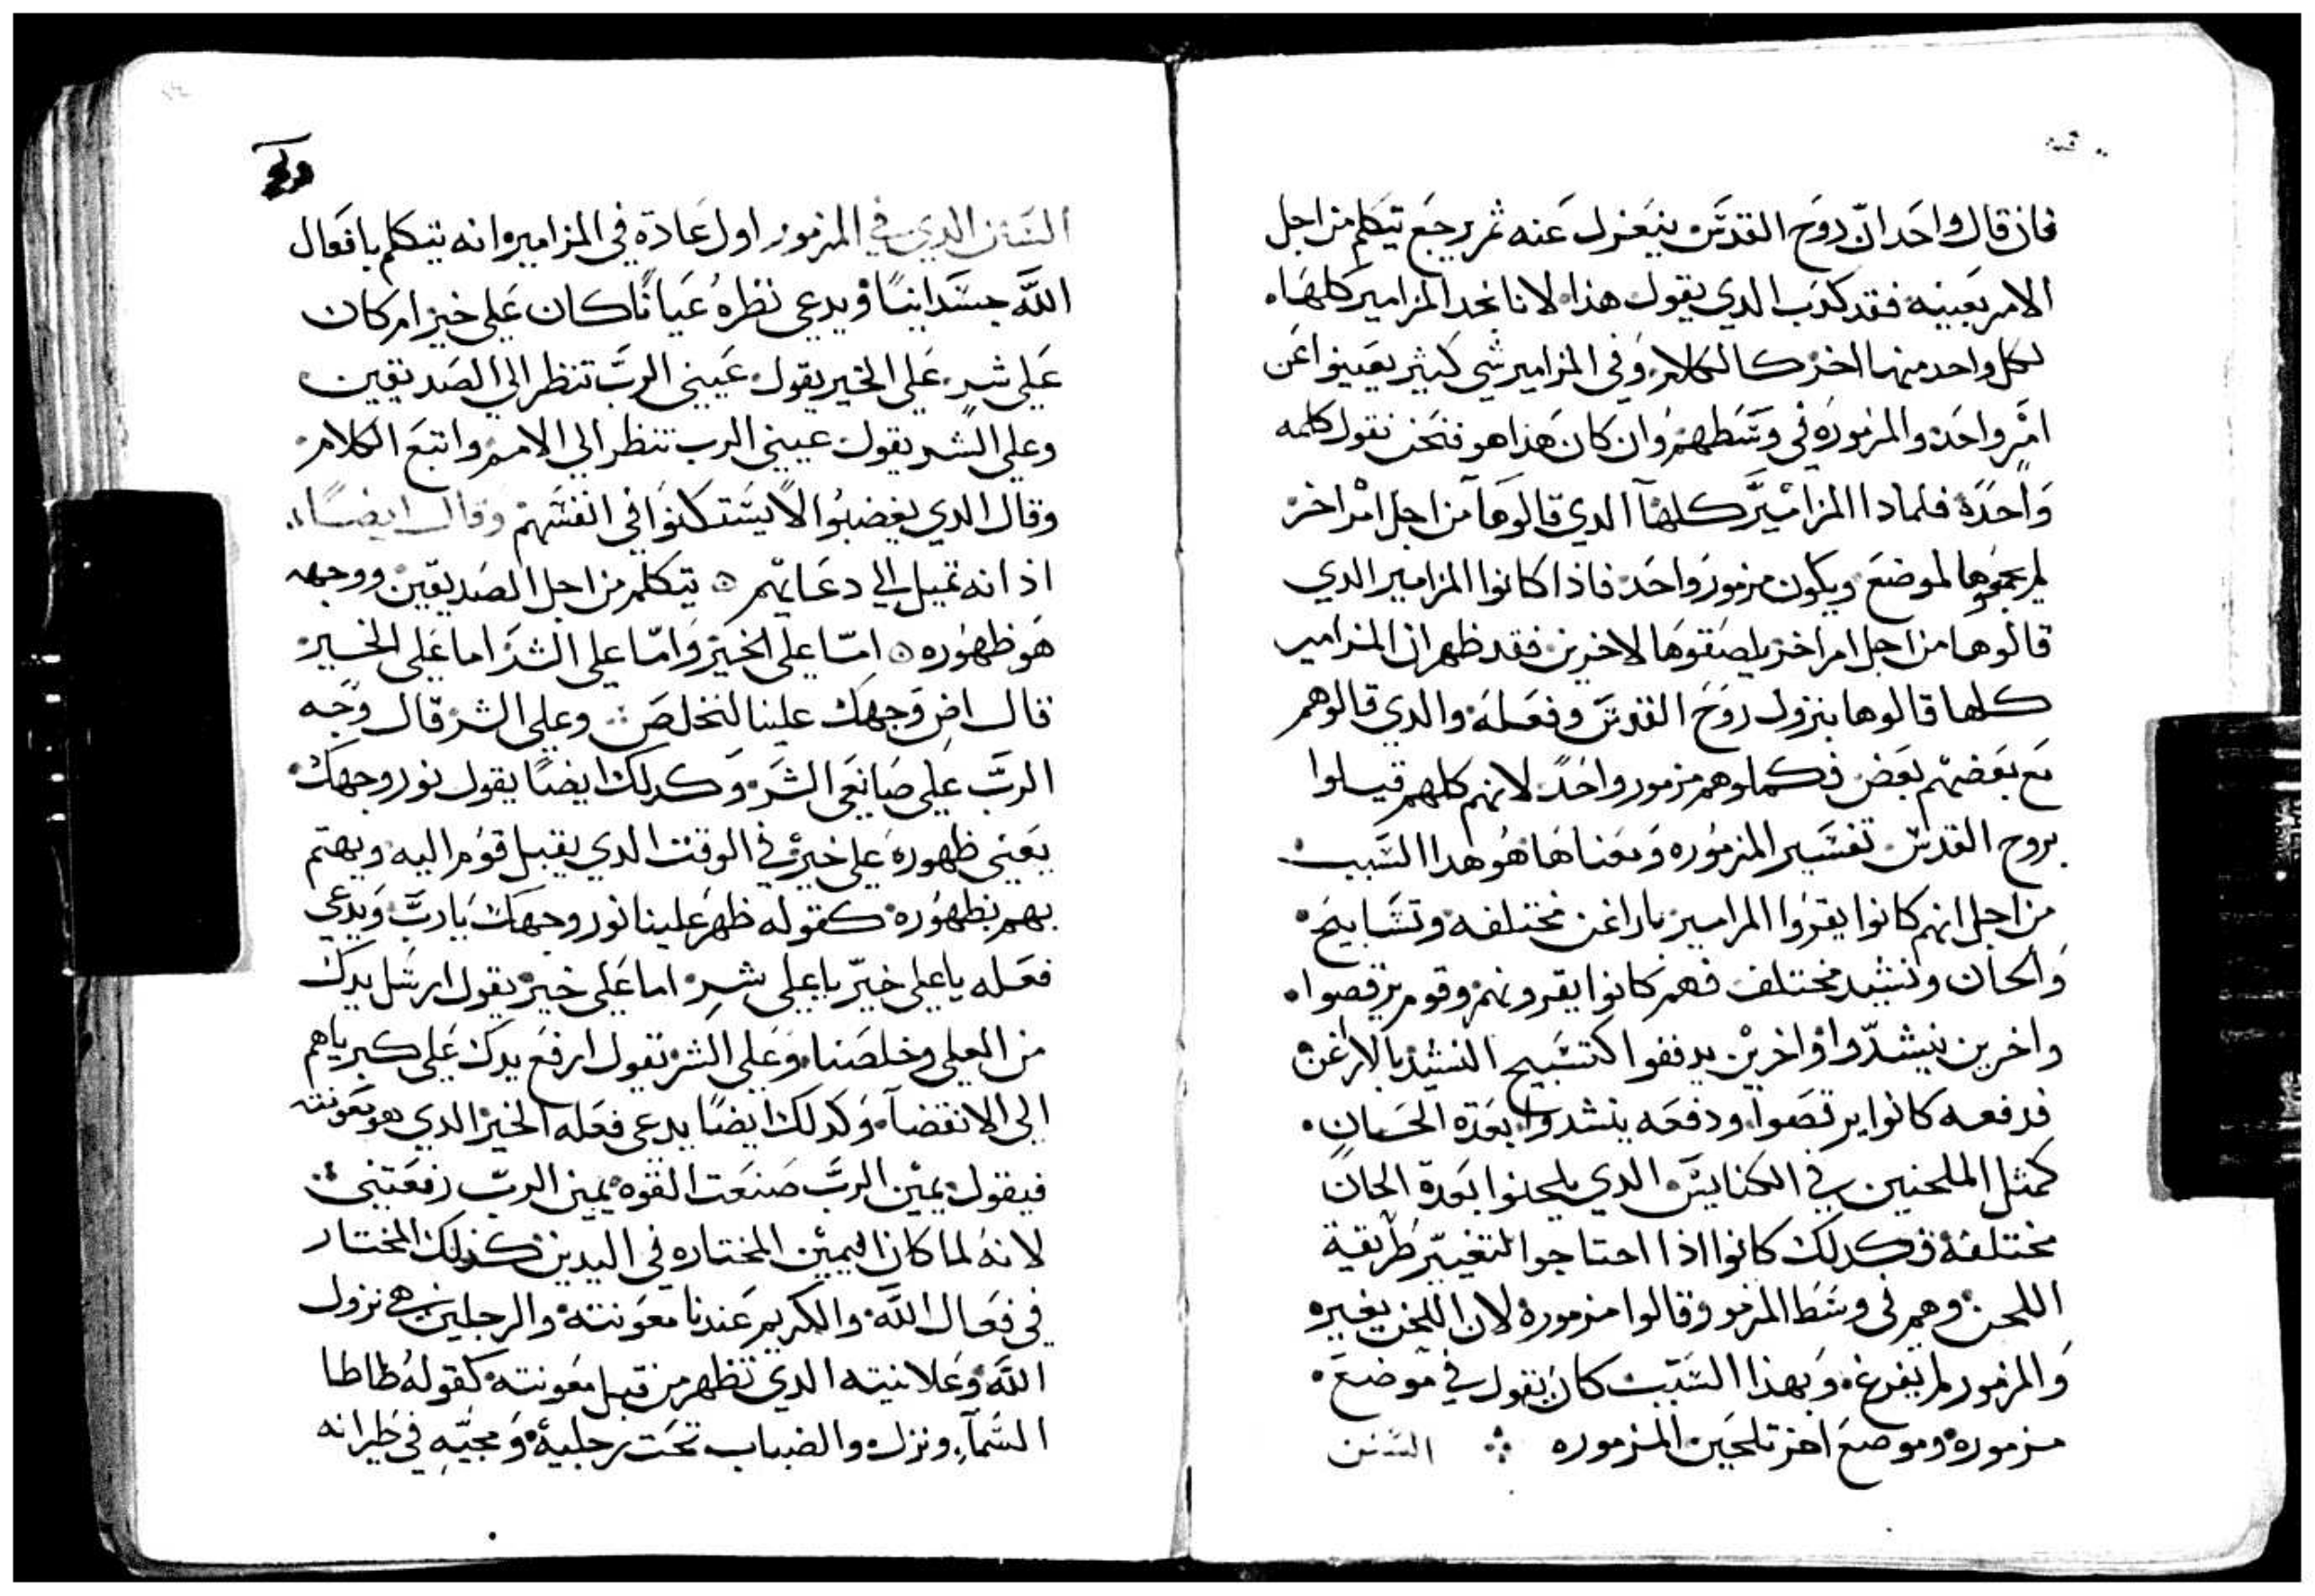 فان قال واحد انّ روح القدس ينعزل عنه ثم يرجع يتكلم من اجل
الامر بعينه فقد كدب الدي يقول هذا لانا نجد المزامير كلها
لكل واحد منها اخر كالكلام وفي المزامير شي كثير يعينوا عن
امر واحد والمزموره في وسطهم وان كان هذا هو فنحن نقول كلمه
واحدة فلمادا المزامير كلها الدي قالوها من اجل امر اخر
لم يجمعوها لموضع ويكون مزمور واحد فاذا كانوا المزامير الدي
قالوها من اجل امر اخر يلصقوها لاخرين فقد ظهر ان المزامير
كلها قالوها بنزول روح القدس وفعله والدي قالوهم
مع بعضهم بعض فكملوهم مزمور واحد لانهم كلهم قيلوا
بروح القدس تفسير المزموره ومعناها هو هدا السبب
من اجل انهم كانوا يقروا المزامير باراغن مختلفه وتسابيح
والحان ونشيد مختلف فهم كانوا يقرونهم وقوم يرقصوا
واخرين ينشدّوا واخرين يدففوا كتسبيح النشيد بالارغن
فدفعه كانوا يرقصوا ودفعه ينشدوا بعدة الحسان
كمثل الملحنين في الكنايس الدي يلحنوا بعدة الحان
مختلفة وكدلك كانوا اذا احتاجوا لتغيير طريقة
اللحن وهم في وسط المزمور قالوا مزمورة لان اللحن يغيره
والمزمور لم يفرغ وبهذا السبب كان يقول في موضع
مزمورة وموضع اخر تلحين المزموره السنن
السنن الدي في المزمور اول عادة في المزامير انه يتكلم بافعال
اللّه جسدانيًا ويدعي نظره عيانًا كان علي خير ام كان
علي شر علي الخير يقول عيني الربّ تنظر الي الصديقين
وعلي الشر يقول عيني الرب تنظر الي الامم واتبع الكلام
وقال الدي يغضبوا لا يستكنوا في انفسهم وقال ايضًا
اذانه تميل الي دعايهم يتكلم من اجل الصديقين ووجهه
هو ظهوره امّا علي الخير وامّا علي الشر اما علي الخير
قال اضِ وجهك علينا لنخلص وعلي الشر قال وجه
الربّ علي صانعي الشر وكدلك ايضًا يقول نور وجهك
يعني ظهوره علي خير في الوقت الدي يقبل قوم اليه ويهتم
بهم بظهوره كقوله ظهر علينا نور وجهك يا ربّ ويدعي
فعله يا علي خيرّ يا علي شر اما علي خير يقول ارسل يدك
من العلي وخلصنا وعلي الشر يقول ارفع يدك علي كبرياهم
الي الانقضآ وكدلك ايضًا يدعي فعله الخير الدي هو معونته
فيقول يمين الربّ صنعت القوه يمين الربّ رفعتني
لانه لما كان اليمين المختاره في اليدين كذلك المختار
في فعال اللّه والكريم عندنا معونته والرجلين هي نزول
اللّه وعلانيته الدي تظهر من قبل معونته كقوله طاطا
السمآ ونزل والضباب تحت رجلية ومجيّه في طيرانه